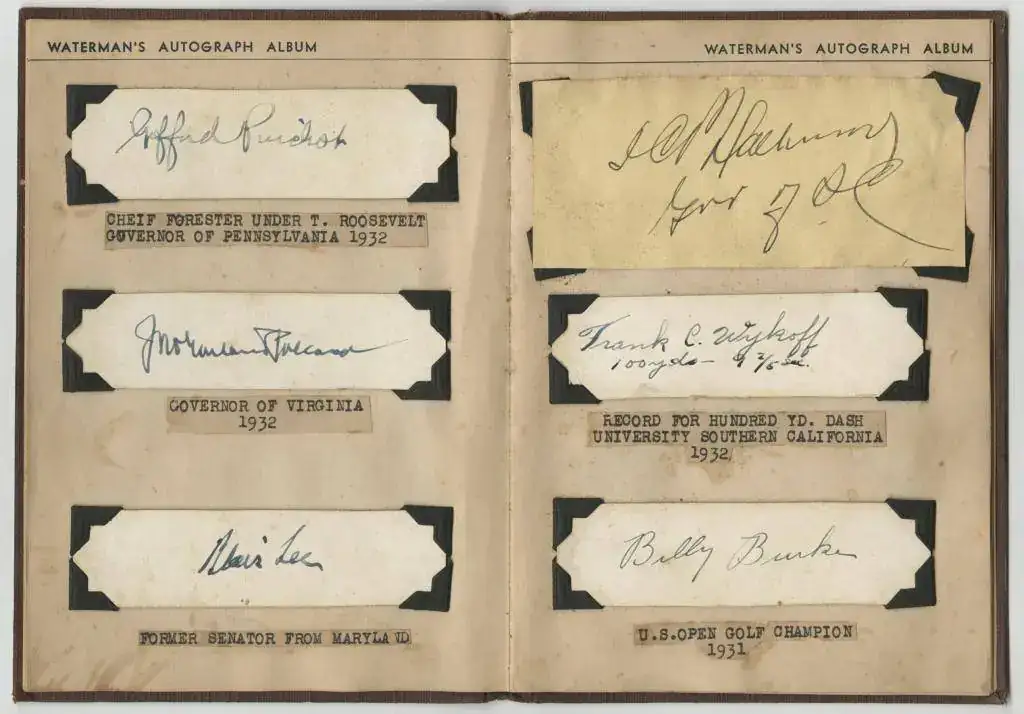 WATERMAN'S AUTOGRAPH ALBUM
Gifford Pinchot
CHEIF FORESTER UNDER T. ROOSEVELT
GOVERNOR OF PENNSYLVANIA 1932
Jno Garland Pollard
GOVERNOR OF VIRGINIA
1932
Blair Lee
FORMER SENATOR FROM MARYLAND
WATERMAN'S AUTOGRAPH ALBUM
I C Blackwood
Gov of S C
Frank C. Wykoff
100yds - 9 2/5 sec.
RECORD FOR HUNDRED YD. DASH
UNIVERSITY SOUTHERN CALIFORNIA
1932
Billy Burke
U.S.OPEN GOLF CHAMPION
1931